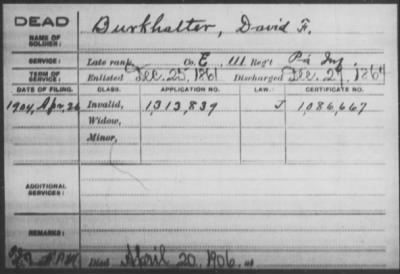 DEAD
NAME OF SOLDIER:
Burkhalter, David F.
SERVICE:
Late rank, Co. E, 111 Reg't Pa Inf.
TERM OF SERVICE:
Enlisted Dec. 25, 1861 Discharged Dec. 29, 1864
DATE OF FILING. CLASS. APPLICATION NO. LAW. CERTIFICATE NO.
1904, Apr, 26 Invalid, 1,313,839 J 1,086,667
Widow,
Minor,
ADDITIONAL SERVICES:
REMARKS:
Died April 20, 1906, at